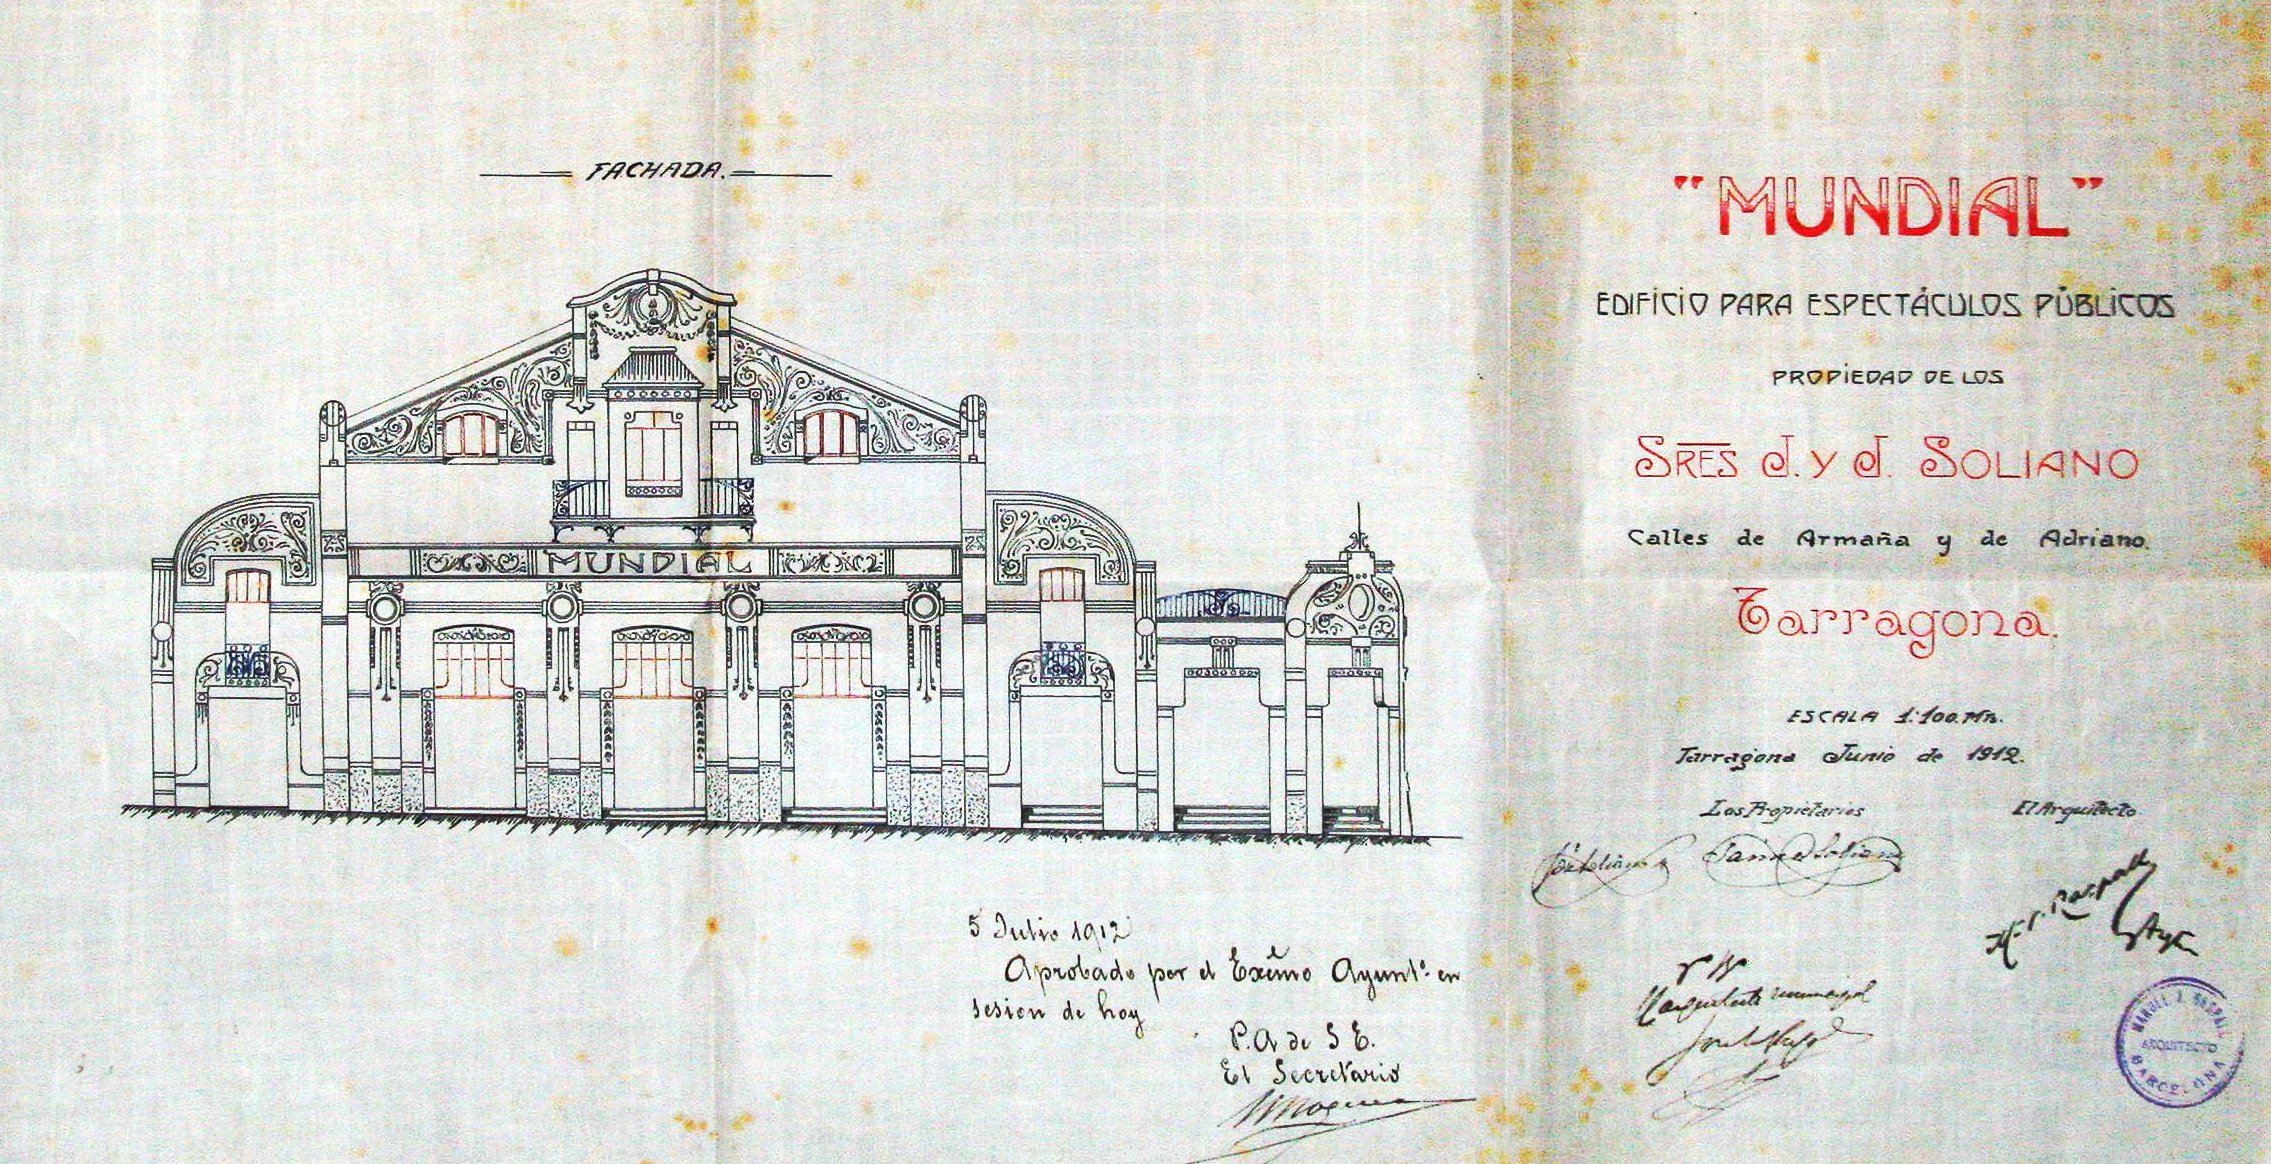 FACHADA.
MUNDIAL
5 Julio 1912
Aprobado por el Excmo Ayuntº. en
sesion de hoy
P.A de S E.
El Secretario
"MUNDIAL"
EDIFICIO PARA ESPECTÁCULOS PÚBLICOS
PROPIEDAD DE LOS
SRES J. Y J. SOLIANO
Calles de Armaña y de Adriano.
Tarragona.
ESCALA 1:100.MR.
Tarragona Junio de 1912.
Los Propietarios
El Arquitecto
Jaime Soliano
Vº Bº
El arquitecto municipal
MANUEL J. RASPALL
ARQUITECTO
BARCELONA